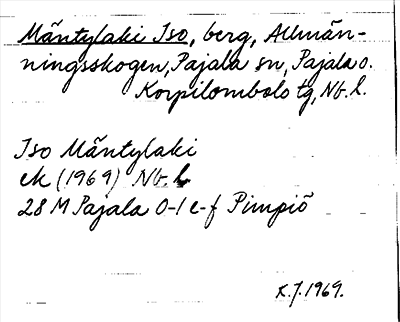 Mäntylaki Iso, berg, Allmän-
ningsskogen, Pajala sn, Pajala o.
Korpilombolo tg, Nb. l.
Iso Mäntylaki
ek (1969) Nb. l
28 M Pajala 0-1 e-f Pimpiö
K.J. 1969.